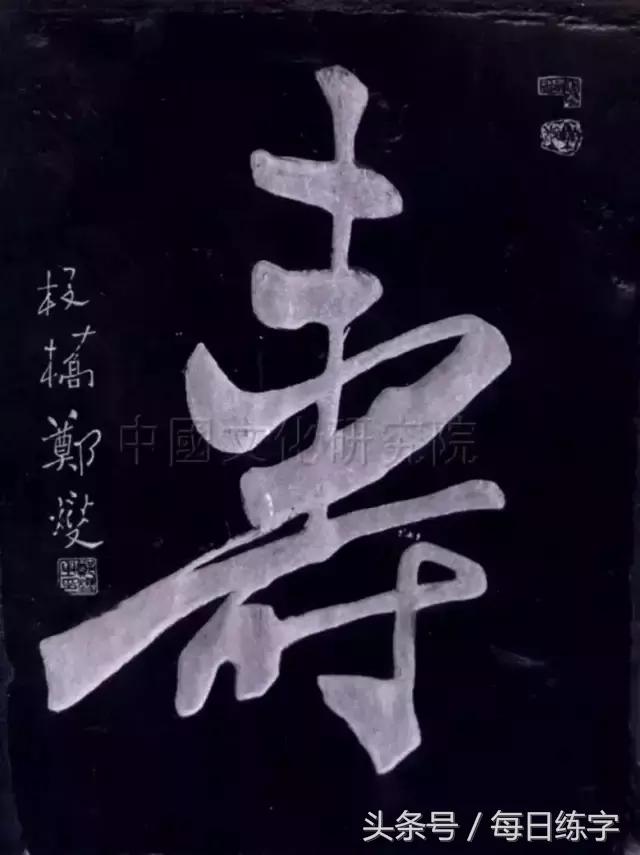 壽
板橋鄭燮
中國文化研究院
头条号 / 每日练字